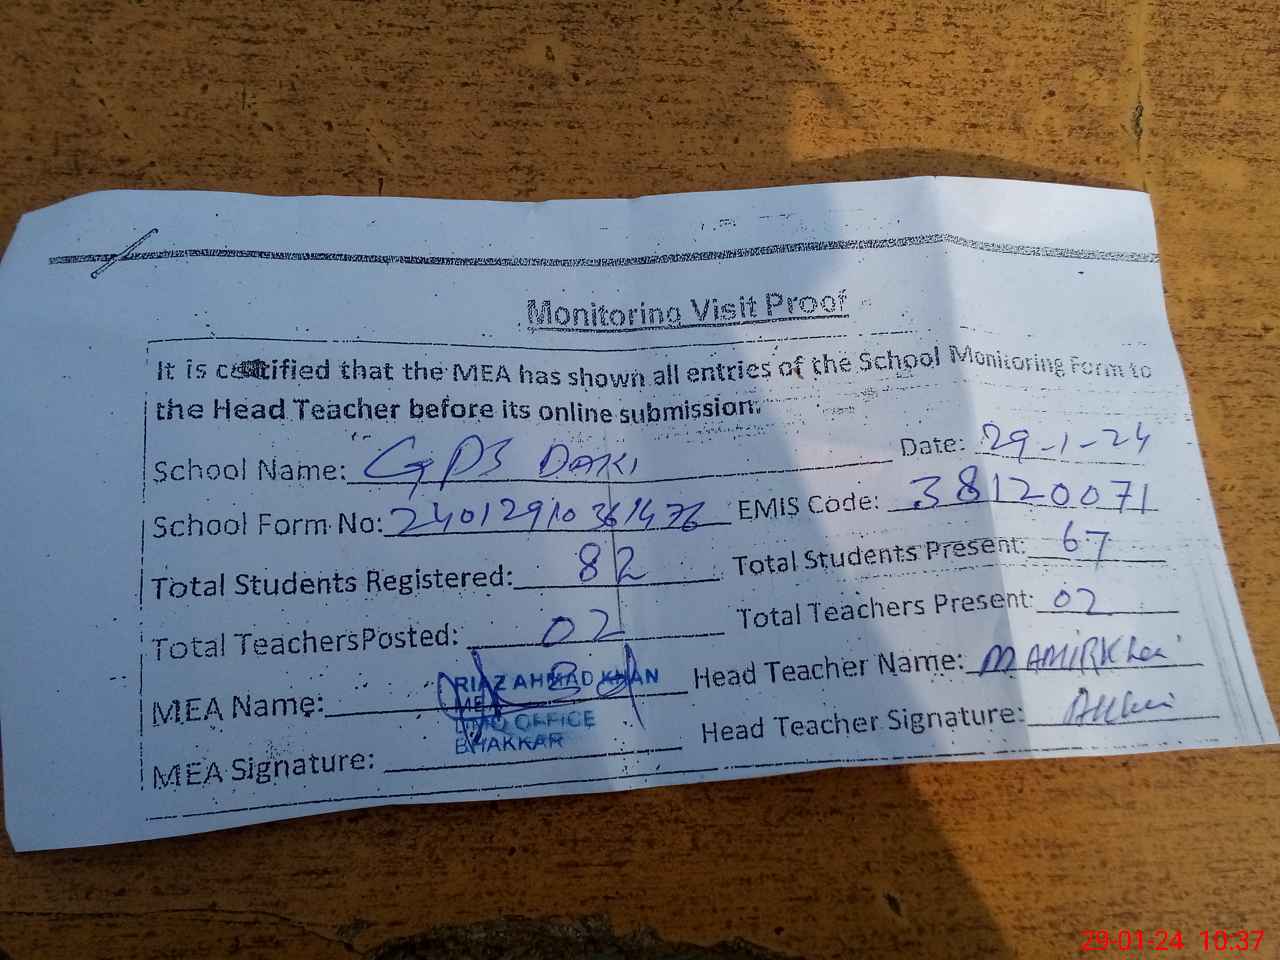 Monitoring Visit Proof
It is certified that the MEA has shown all entries of the School Monitoring Form to
the Head Teacher before its online submission.
School Name: GPS DAKI Date: 29-1-24
School Form No: 2401291036 EMIS Code: 38120071
Total Students Registered: 82 Total Students Present: 67
Total TeachersPosted: 02 Total Teachers Present: 02
MEA Name: RIAZ AHMAD KHAN Head Teacher Name: M AMIR Khan
MEA
DMO OFFICE
BHAKKAR
MEA Signature: Head Teacher Signature:
29-01-24 10:37